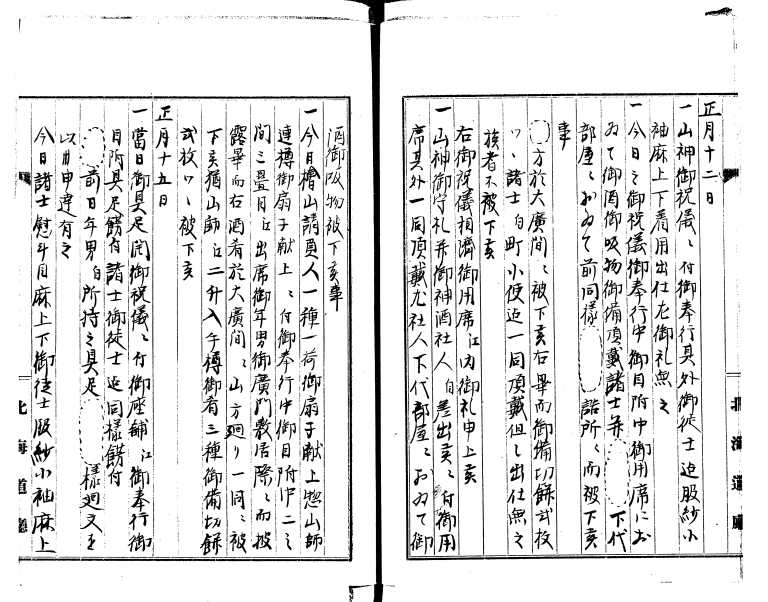 正月十二日
一山神御祝儀ニ付御奉行其外御徒士迄服紗小
袖麻上下着用出仕左御礼無之
一今日之御祝儀御奉行中御目附中御用席にお
ゐて御酒御吸物御備頂戴諸士并 下代
部屋ニおゐて前同様 詰所ニ而被下亥
事
方於大廣間ニ被下亥右畢而御備切餘弐枚
ツヽ諸士自町小使迄一同頂戴但シ出仕無之
族者不被下亥
右御祝儀相濟御用席江内御礼申上亥
一山神御守札并御神酒社人自差出亥ニ付御用
席其外一同頂戴尤社人下代部屋ニおゐて御
酒御吸物被下亥事
一今日檜山請負人一種一荷御扇子献上惣山師
連樽御扇子献上ニ付御奉行中御目附中二之
間三畳目江出席御年男御廣門敷居際ニ而披
露畢而右酒肴於大廣間ニ山方廻り一同ニ被
下亥猶山師江二升入手樽御肴三種御備切餘
弐枚ツヽ被下亥
正月十五日
一當日御具足開御祝儀ニ付御座舗江御奉行御
目附具足餝自諸士御徒士迄同様餝付
前日年男自所持之具足 様廻文を
以自申達有之
今日諸士慰斗目麻上下御徒士服紗小袖麻上
北海道廳
北海道廳